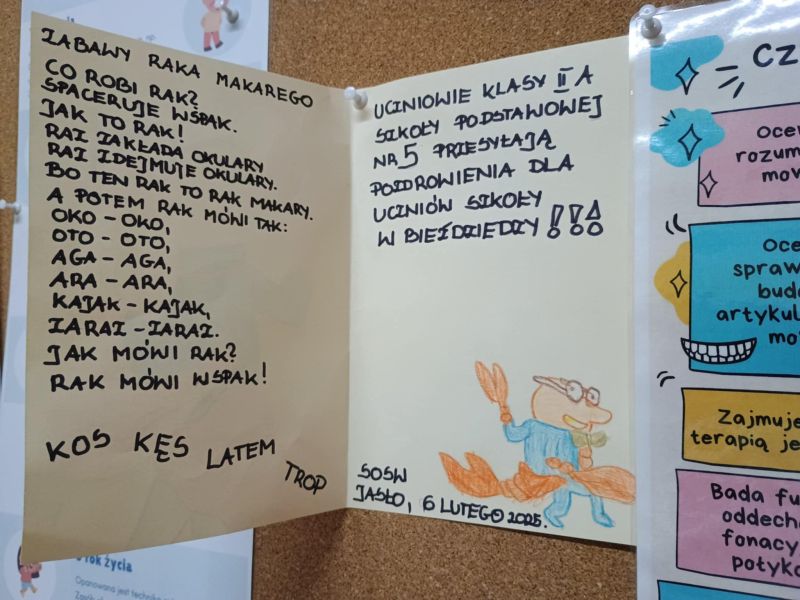 ZABAWY RAKA MAKAREGO
CO ROBI RAK?
SPACERUJE WSPAK.
JAK TO RAK!
RAZ ZAKŁADA OKULARY
RAZ ZDEJMUJE OKULARY.
BO TEN RAK TO RAK MAKARY.
A POTEM RAK MÓWI TAK:
OKO – OKO,
OTO – OTO,
AGA – AGA,
ARA – ARA,
KAJAK – KAJAK,
ZARAZ – ZARAZ.
JAK MÓWI RAK?
RAK MÓWI WSPAK!
KOS KĘS LATEM TROP
UCZNIOWIE KLASY II A
SZKOŁY PODSTAWOWEJ
NR 5 PRZESYŁAJĄ
POZDROWIENIA DLA
UCZNIÓW SZKOŁY
W BIEŹDZIEDZY !!!
SOSW
JASŁO, 6 LUTEGO 2025.
rok życia
Opanowana jest technika
Cz
Oce
rozum
mov
Oce
spraw
budo
artykul
mo
Zajmuje
terapią je
Bada fu
oddech
fonacy
potyka